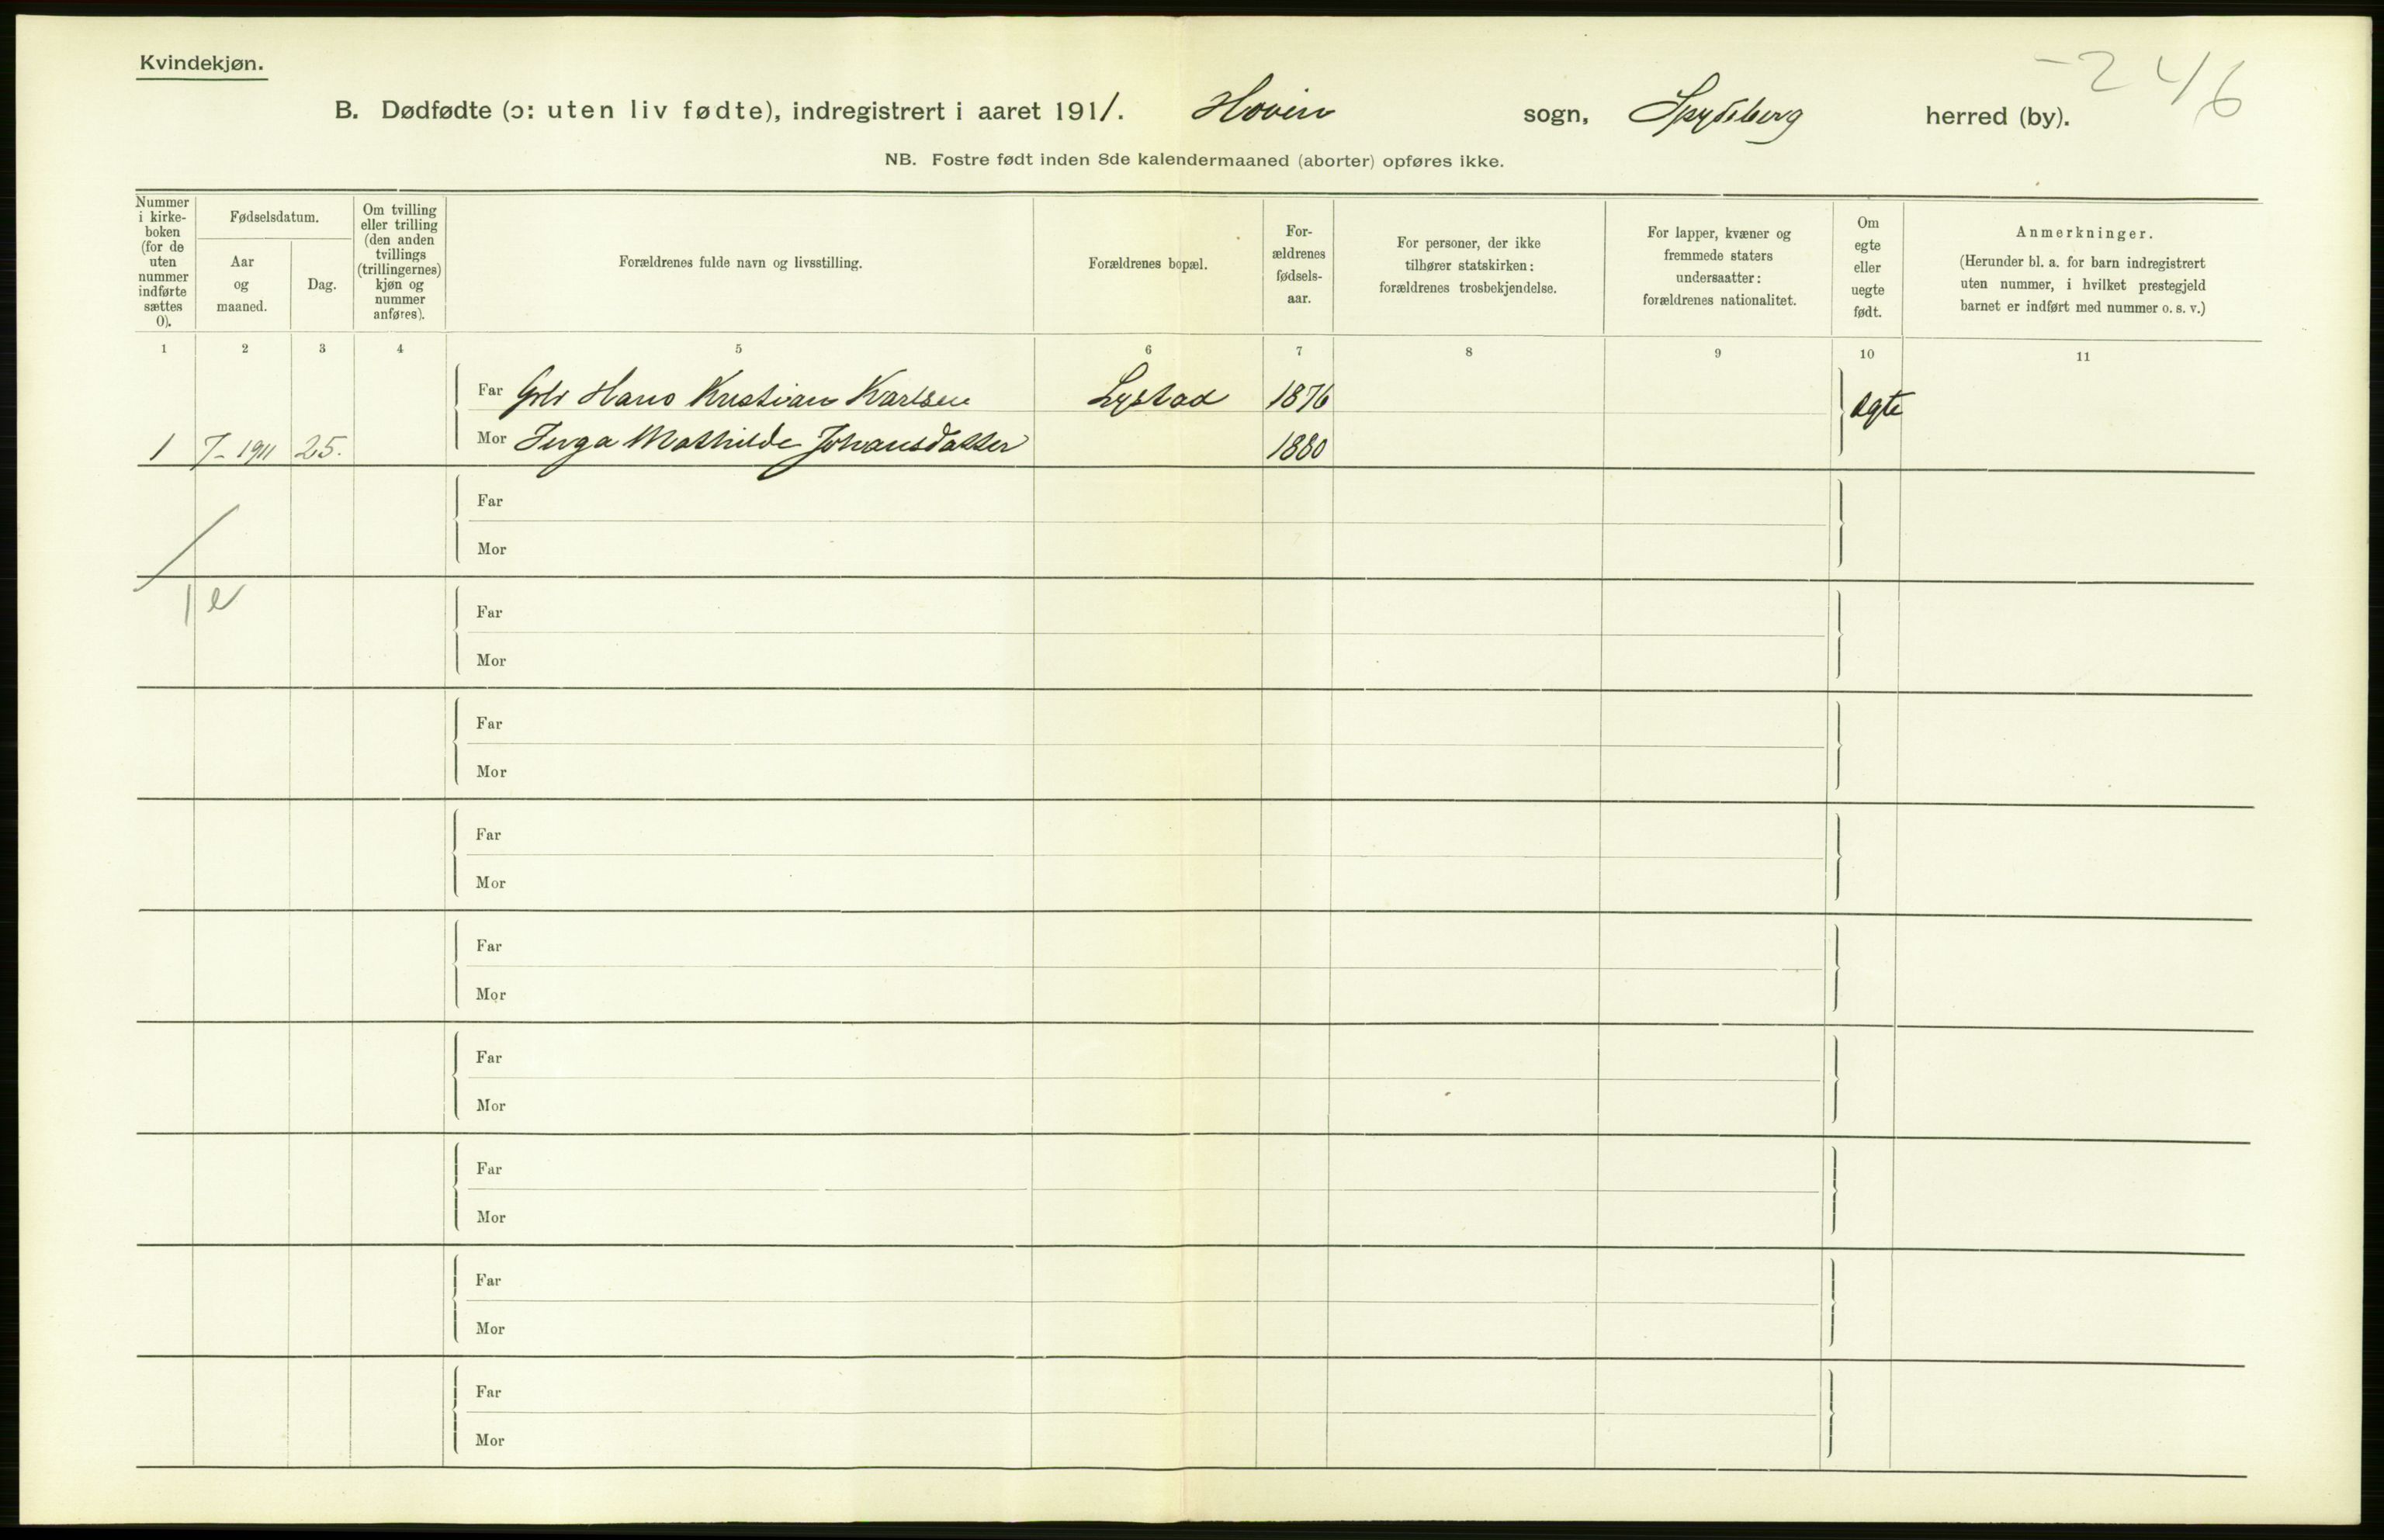 Kvindekjøn.
-246
B. Dødfødte (ɔ: uten liv fødte), indregistrert i aaret 1911. Hovin sogn, Spydeberg herred (by).
NB. Fostre født inden 8de kalendermaaned (aborter) opføres ikke.
Nummer
i kirke-
boken
(for de
uten
nummer
indførte
sættes
0).
Fødselsdatum.
Aar
og
maaned.
Dag.
Om tvilling
eller trilling
(den anden
tvillings
(trillingernes)
kjøn og
nummer
anføres).
Forældrenes fulde navn og livsstilling.
Forældrenes bopæl.
For-
ældrenes
fødsels-
aar.
For personer, der ikke
tilhører statskirken:
forældrenes trosbekjendelse.
For lapper, kvæner og
fremmede staters
undersaatter:
forældrenes nationalitet.
Om
egte
eller
uegte
født.
Anmerkninger.
(Herunder bl. a. for barn indregistrert
uten nummer, i hvilket prestegjeld
barnet er indført med nummer o. s. v.)
1 2 3 4 5 6 7 8 9 10 11
Far Hans Kristian Karlsen Lystad 1876 egte
1 7- 1911 25. Mor Inga Mathilde Johansdatter 1880
Far
Mor
1 e
Far
Mor
Far
Mor
Far
Mor
Far
Mor
Far
Mor
Far
Mor
Far
Mor
Far
Mor